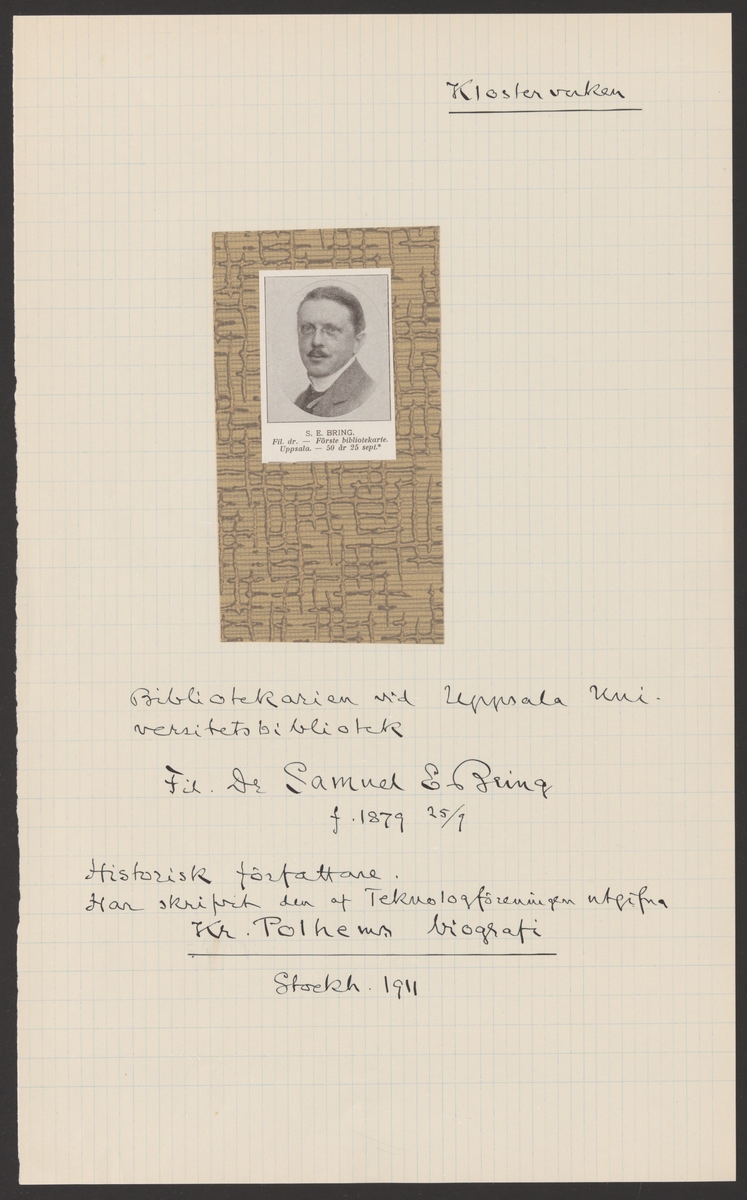 Klosterverken
S. E. BRING.
Fil. dr. — Förste bibliotekarie.
Uppsala. — 50 år 25 sept.*
Bibliotekarien vid Uppsala Uni-
versitetsbibliotek
Fil. Dr Samuel E. Bring
f. 1879 25/9
Historisk författare.
Har skrifvit den af Teknologföreningen utgifna
Kr. Polhems biografi
Stockh. 1911